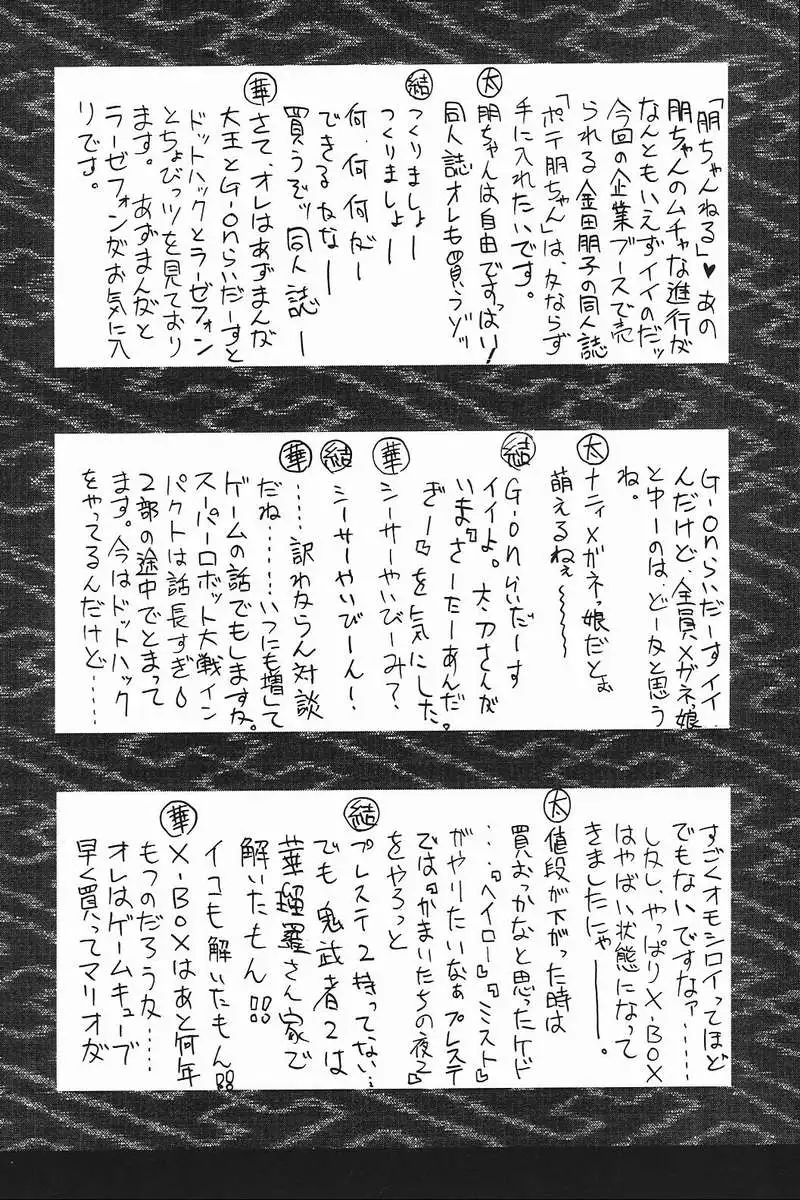 「朋ちゃんねる」♥あの
朋ちゃんのムチャな進行が
なんともいえずイイのだッ
今回の企業ブースで売
られる金田朋子の同人誌
「ポテ朋ちゃん」は、かならず
手に入れたいです。
太 朋ちゃんは自由ですっはい!
同人誌オレも買うゾッ
結 つくりましょー
つくりましょー
何、何何がー
できるかなー
買うぞッ同人誌ー
華 さて、オレはあずまんが
大王とG-onらいだーすと
ドットハックとラーゼフォン
とちょびッツを見ており
ます。あずまんがと
ラーゼフォンがお気に入
りです。
G-onらいだーすイイ
んだけど、全員メガネっ娘
とゆーのは、どーかと思う
ね。
太 ナティメガネっ娘だとぉ
萌えるねぇ〜〜〜〜
結 G-onらいだーす
イイよ。太刀さんが
いま『さーたーあんだ
ぎー』を気にした。
華 シーサーやいびーみ?
結 シーサーやいびーん!
華 ……訳わからん対談
だね……いつにも増して
ゲームの話でもしますか。
スーパーロボット大戦イン
パクトは話長すぎ
2部の途中でとまって
ます。今はドットハック
をやってるんだけど……
すごくオモシロイってほど
でもないですなァ……
しかし、やっぱりX-BOX
はやばい状態になって
きましたにゃー。
太 値段が下がった時は
買おっかなと思ったケド
…『ヘイロー』『ミスト』
がやりたいなぁプレステ
では『かまいたちの夜2』
をやろっと
結 プレステ2持ってない…
でも鬼武者2は
華瑠羅さん家で
解いたもん!!
イコも解いたもん!!
華 X-BOXはあと何年
もつのだろうか……
オレはゲームキューブ
早く買ってマリオが